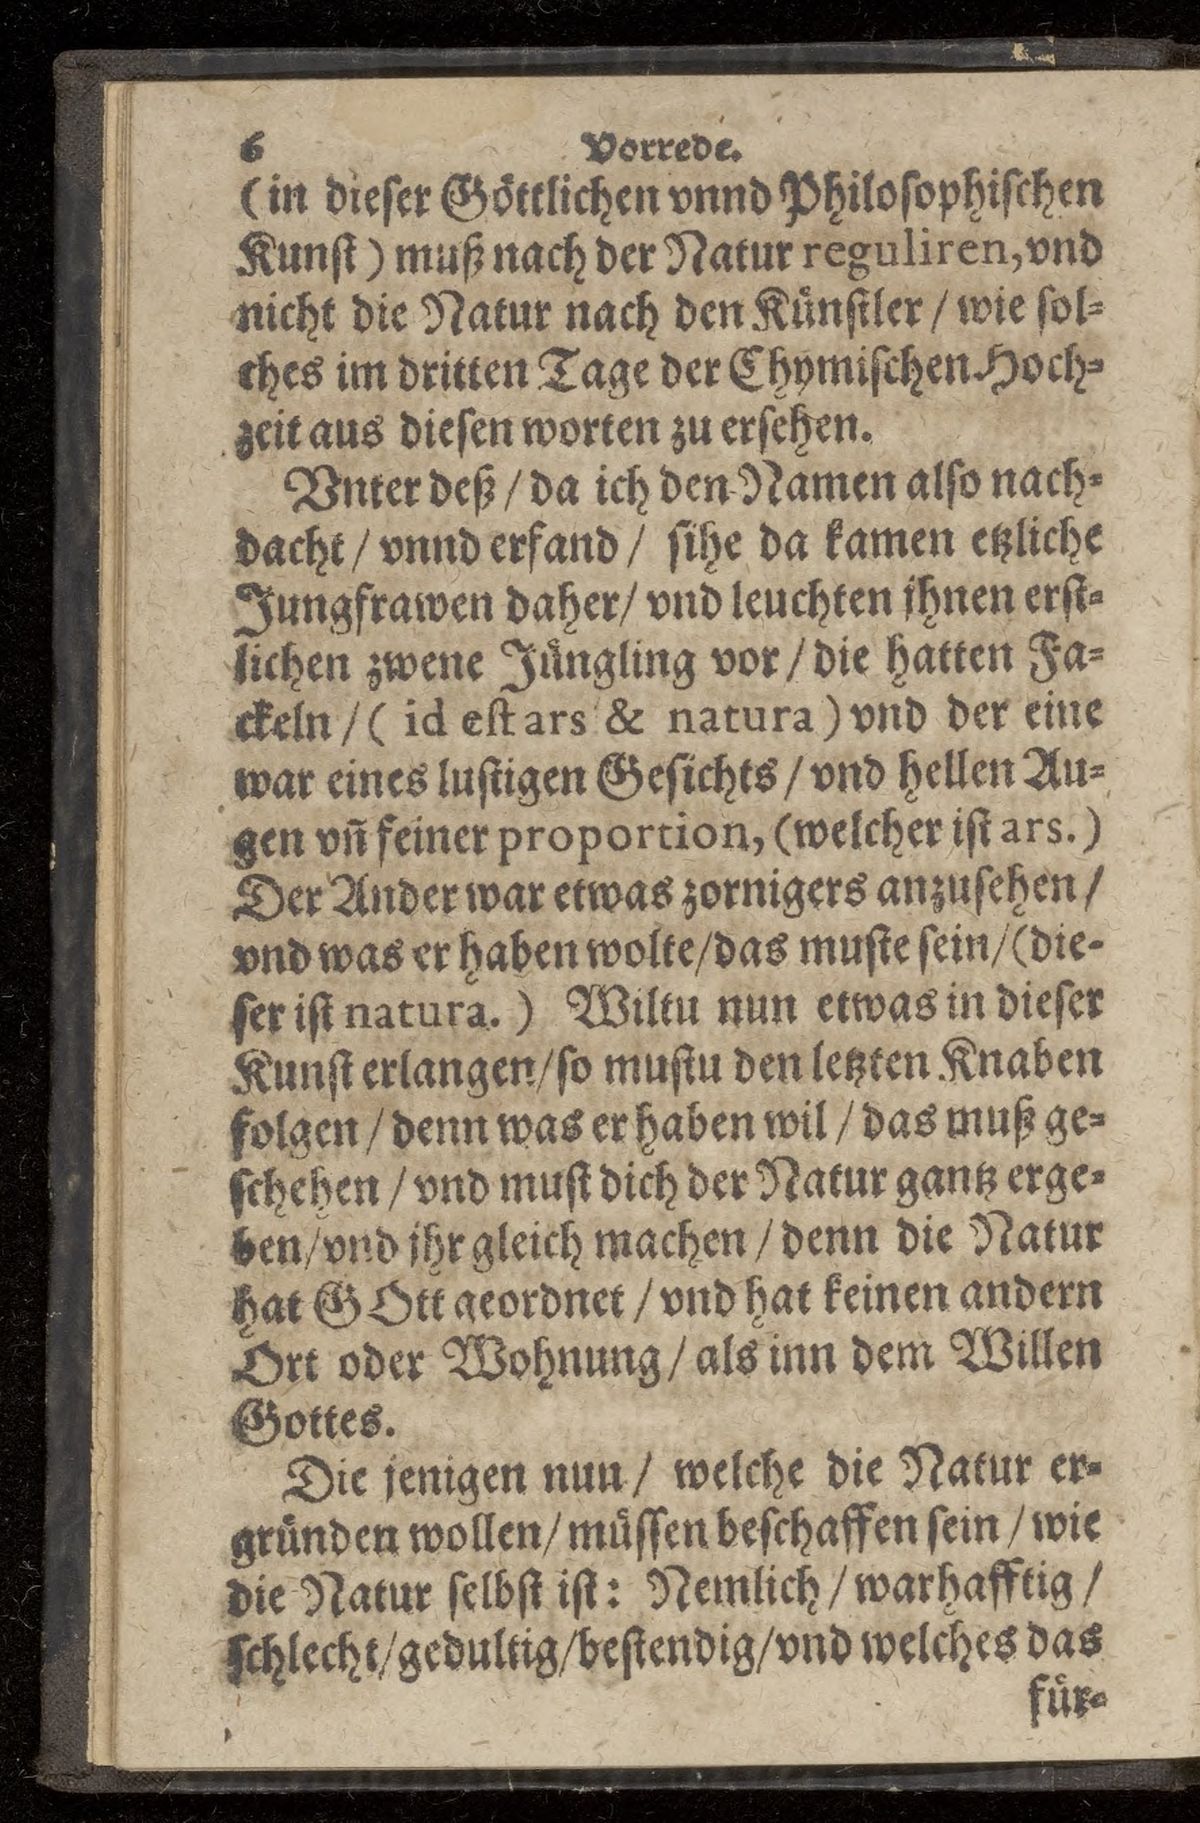 6 Vorrede.
(in dieser Göttlichen vnnd Philosophischen
Kunst) muß nach der Natur reguliren, vnd
nicht die Natur nach den Künstler / wie sol-
ches im dritten Tage der Chymischen Hoch-
zeit aus diesen worten zu ersehen.
Vnter deß / da ich den Namen also nach-
dacht / vnnd erfand / sihe da kamen etzliche
Jungfrawen daher / vnd leuchten jhnen erst-
lichen zwene Jüngling vor / die hatten Fa-
ckeln / ( id est ars & natura ) vnd der eine
war eines lustigen Gesichts / vnd hellen Au-
gen vn̄ feiner proportion, (welcher ist ars.)
Der Ander war etwas zornigers anzusehen /
vnd was er haben wolte / das muste sein / (die-
ser ist natura. ) Wiltu nun etwas in dieser
Kunst erlangen / so mustu den letzten Knaben
folgen / denn was er haben wil / das muß ge-
schehen / vnd must dich der Natur gantz erge-
ben / vnd jhr gleich machen / denn die Natur
hat GOtt geordnet / vnd hat keinen andern
Ort oder Wohnung / als inn dem Willen
Gottes.
Die jenigen nun / welche die Natur er-
gründen wollen / müssen beschaffen sein / wie
die Natur selbst ist: Nemlich / warhafftig /
schlecht / gedultig / bestendig / vnd welches das
für-